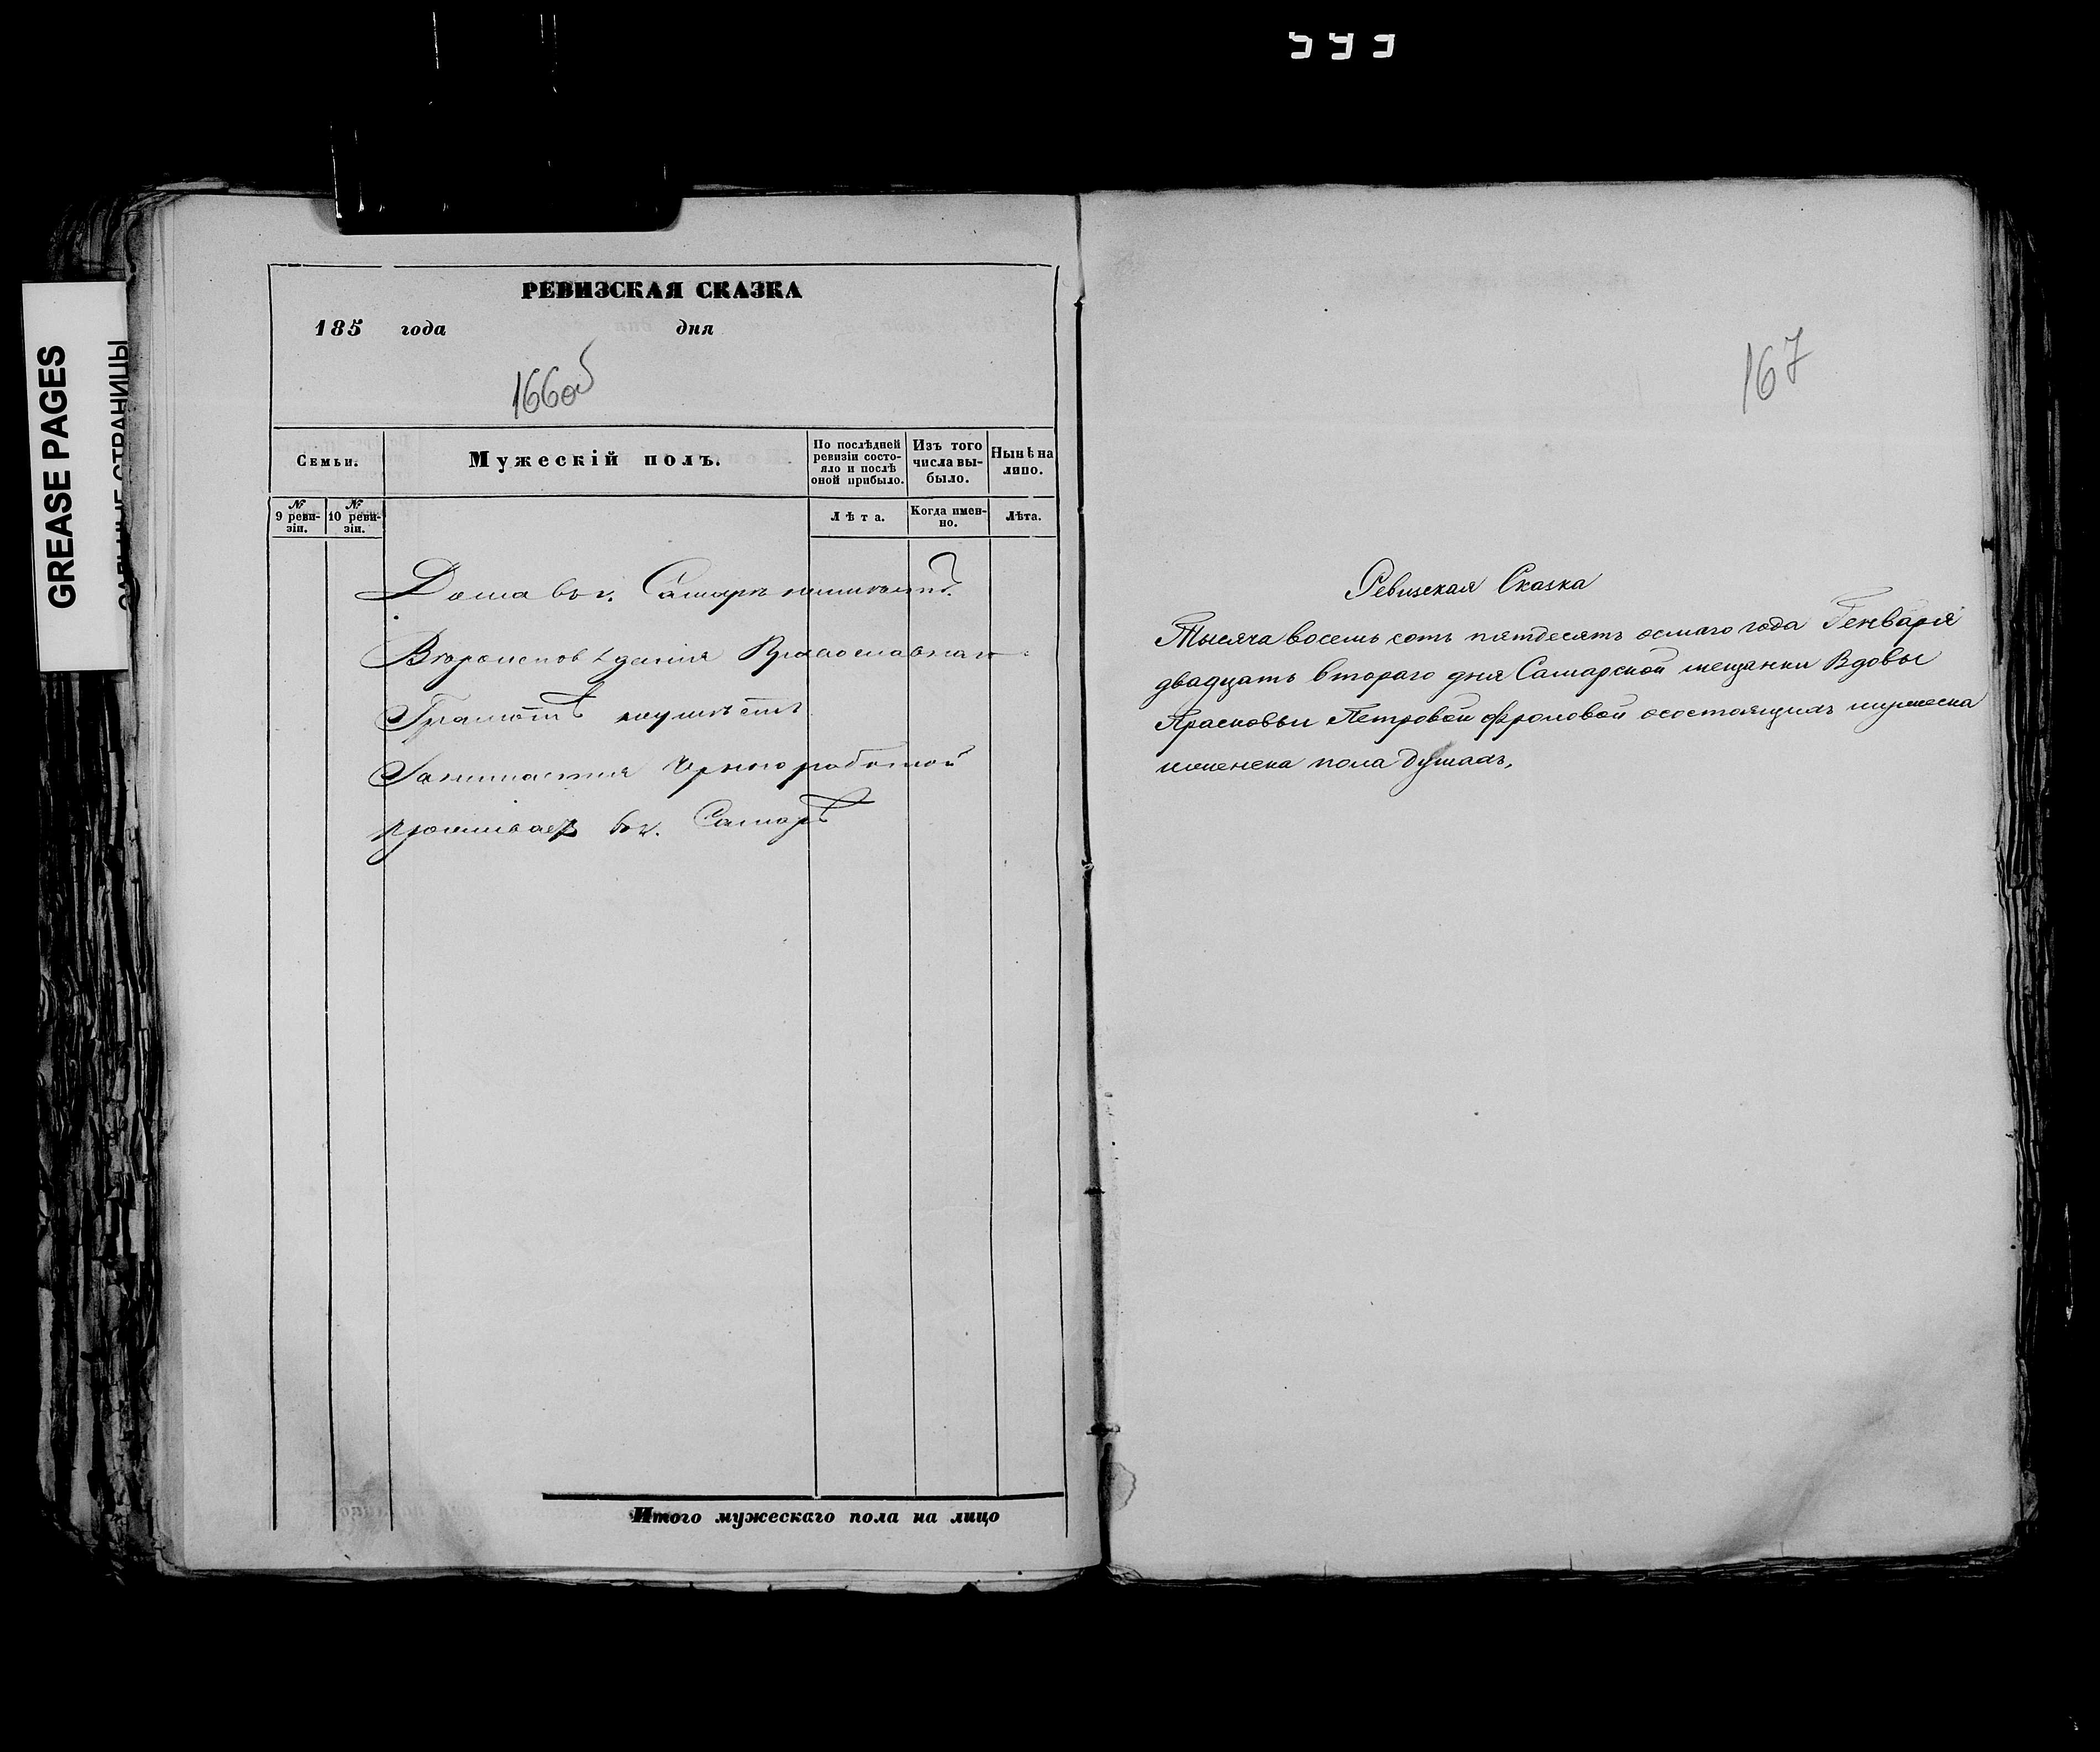 GREASE PAGES
РЕВИЗСКАЯ СКАЗКА
185 года дня
166об
Семьи.
Мужескій полъ.
По послѣдней ревизіи состояло и послѣ оной прибыло.
Изъ того числа выбыло.
Нынѣ на лицо.
№ 9 ревизіи.
№ 10 ревизіи.
Лѣта.
Когда именно.
Лѣта.
Дома в г. Самаре неимѣетъ
Вероисповеданія Православнаго
Грамотѣ неумѣетъ
Занимается Чорноработой
проживает в г. Самарѣ
Итого мужескаго пола на лицо
167
Ревизская Сказка
Тысяча восемь сотъ пятдесятъ осмаго года Генваря
двадцать втораго дня Самарской мещанки Вдовы
Прасковьи Петровой Фроловой осостоящихъ мужеска
иженска пола душахъ,